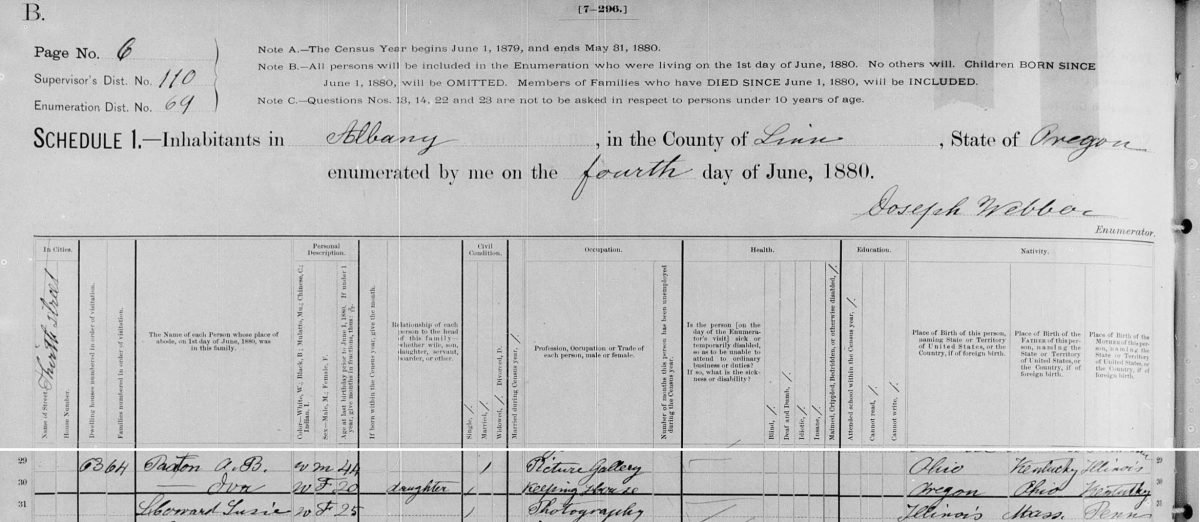 B.
[7-296.]
Page No. 6
Supervisor's Dist. No. 110
Enumeration Dist. No. 69
Note A.—The Census Year begins June 1, 1879, and ends May 31, 1880.
Note B.—All persons will be included in the Enumeration who were living on the 1st day of June, 1880. No others will. Children BORN SINCE
June 1, 1880, will be OMITTED. Members of Families who have DIED SINCE June 1, 1880, will be INCLUDED.
Note C.—Questions Nos. 13, 14, 22 and 23 are not to be asked in respect to persons under 10 years of age.
SCHEDULE 1.—Inhabitants in Albany, in the County of Linn, State of Oregon
enumerated by me on the fourth day of June, 1880.
Joseph Webber
Enumerator.
In Cities.
Name of Street.
street
House Number.
Dwelling houses numbered in order of visitation.
Families numbered in order of visitation.
The Name of each Person whose place of
abode, on 1st day of June, 1880, was
in this family.
Personal
Description.
Color—White, W.; Black, B.; Mulatto, Mu.; Chinese, C.;
Indian, I.
Sex—Male, M.; Female, F.
Age at last birthday prior to June 1, 1880. If under 1
year, give months in fractions, thus:
If born within the Census year, give the month.
Relationship of each
person to the head
of this family—
whether wife, son,
daughter, servant,
boarder, or other.
Civil
Condition.
Single, /
Married, /
Widowed, / Divorced, D.
Married during Census year, /
Occupation.
Profession, Occupation or Trade of
each person, male or female.
Number of months this person has been unemployed
during the Census year.
Health.
Is the person [on the
day of the Enumera-
tor's visit] sick or
temporarily disabled,
so as to be unable to
attend to ordinary
business or duties?
If so, what is the sick-
ness or disability?
Blind, /
Deaf and Dumb, /
Idiotic, /
Insane, /
Maimed, Crippled, Bedridden, or otherwise disabled, /
Education.
Attended school within the Census year, /
Cannot read, /
Cannot write, /
Nativity.
Place of Birth of this person,
naming State or Territory
of United States, or the
Country, if of foreign birth.
Place of Birth of the
FATHER of this per-
son, naming the
State or Territory of
United States, or
the Country, if of
foreign birth.
Place of Birth of the
MOTHER of this per-
son, naming the
State or Territory
of United States, or
the Country, if of
foreign birth.
29 63 64 Paxton A. B. W M 44 / Picture Gallery Ohio Kentucky Illinois 29
30 — Iva W F 20 daughter / Keeping House Oregon Ohio Kentucky 30
31 Susie W F 25 / Photography Illinois Mass. Penn 31